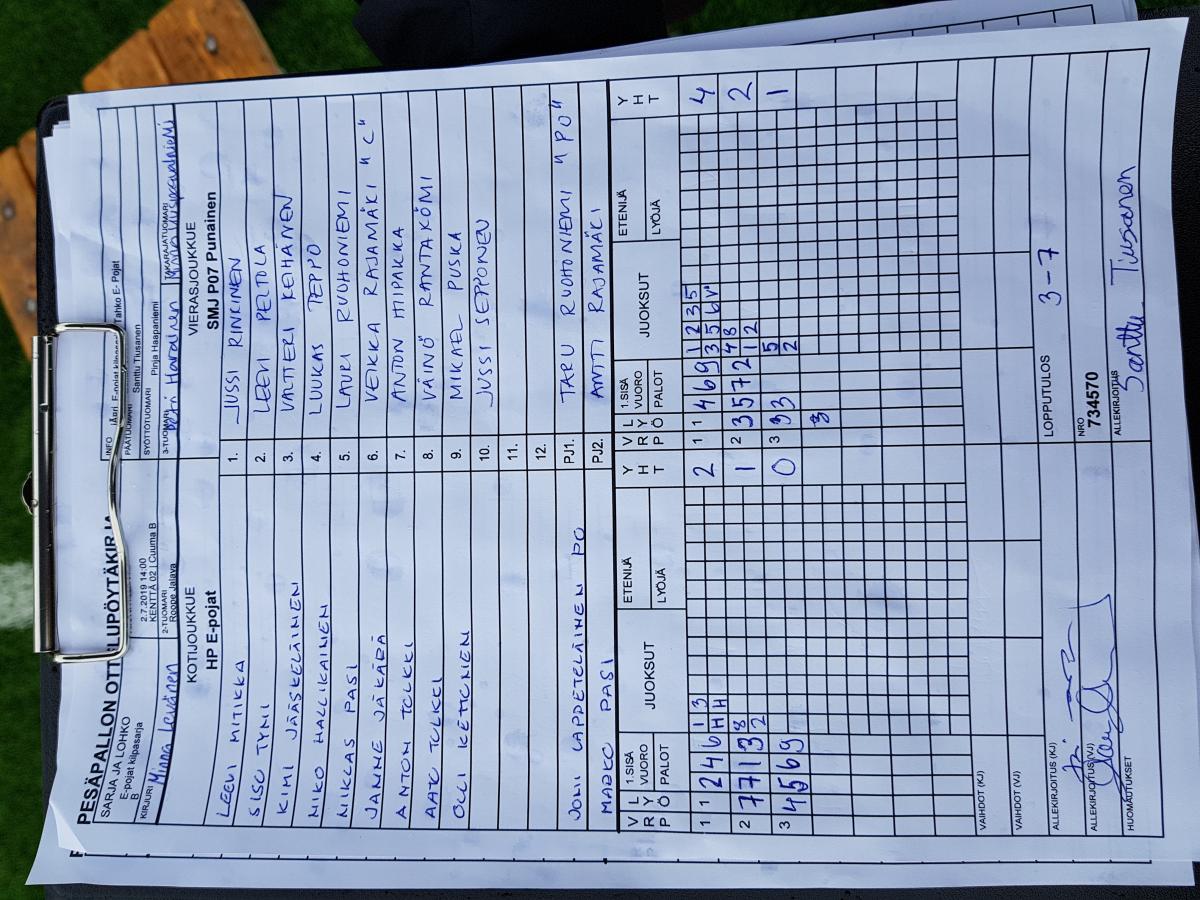 PESÄPALLON OTTELUPÖYTÄKIRJA
SARJA JA LOHKO
E-pojat kilpasarja
B
2.7.2019 14:00
KENTTÄ 02 | Cuuma B
INFO
PÄÄTUOMARI Santtu Tiusanen
SYÖTTÖTUOMARI Pinja Haapaniemi
KIRJURI Minna Levänen
2-TUOMARI Roope Jalava
3-TUOMARI Petri Harainen
TAKARAJATUOMARI
KOTIJOUKKUE
HP E-pojat
VIERASJOUKKUE
SMJ P07 Punainen
LEEVI MITIKKA 1. JUSSI RINKINEN
SISU TYNI 2. LEEVI PELTOLA
KIMI JÄÄSKELÄINEN 3. VALTTERI KEIHÄNEN
NIKO HALLIKAINEN 4. LUUKAS TEPPO
NIKLAS PASI 5. LAURI RUOHONIEMI
JANNE JÄKÄRÄ 6. VEIKKA RAJAMÄKI "C"
ANTON TOLKKI 7. ANTON HIIPAKKA
AATU TULKKI 8. VÄINÖ RANTAKÖMI
OLLI KETTUNEN 9. MIKAEL PUSKA
10. JUSSI SEPPONEN
11.
12.
JONI LAPPETELÄINEN PO PJ1. TARU RUOHONIEMI "PO"
MARKO PASI PJ2. ANTTI RAJAMÄKI
VRP LYÖ 1.SISÄ VUORO PALOT JUOKSUT ETENIJÄ LYÖJÄ YHT VRP LYÖ 1.SISÄ VUORO PALOT JUOKSUT ETENIJÄ LYÖJÄ YHT
1 1 2 4 6 1 3 2 1 1 4 6 9 1 2 3 5 4
H H 3 5 6 V
2 7 7 1 3 8 1 2 3 5 7 2 4 8 2
2 1 2
3 4 5 6 9 0 3 9 3 5 1
2
3
VAIHDOT (KJ)
VAIHDOT (VJ)
ALLEKIRJOITUS (KJ)
LOPPUTULOS 3-7
ALLEKIRJOITUS (VJ)
NRO
734570
HUOMAUTUKSET
ALLEKIRJOITUS
Santtu Tiusanen